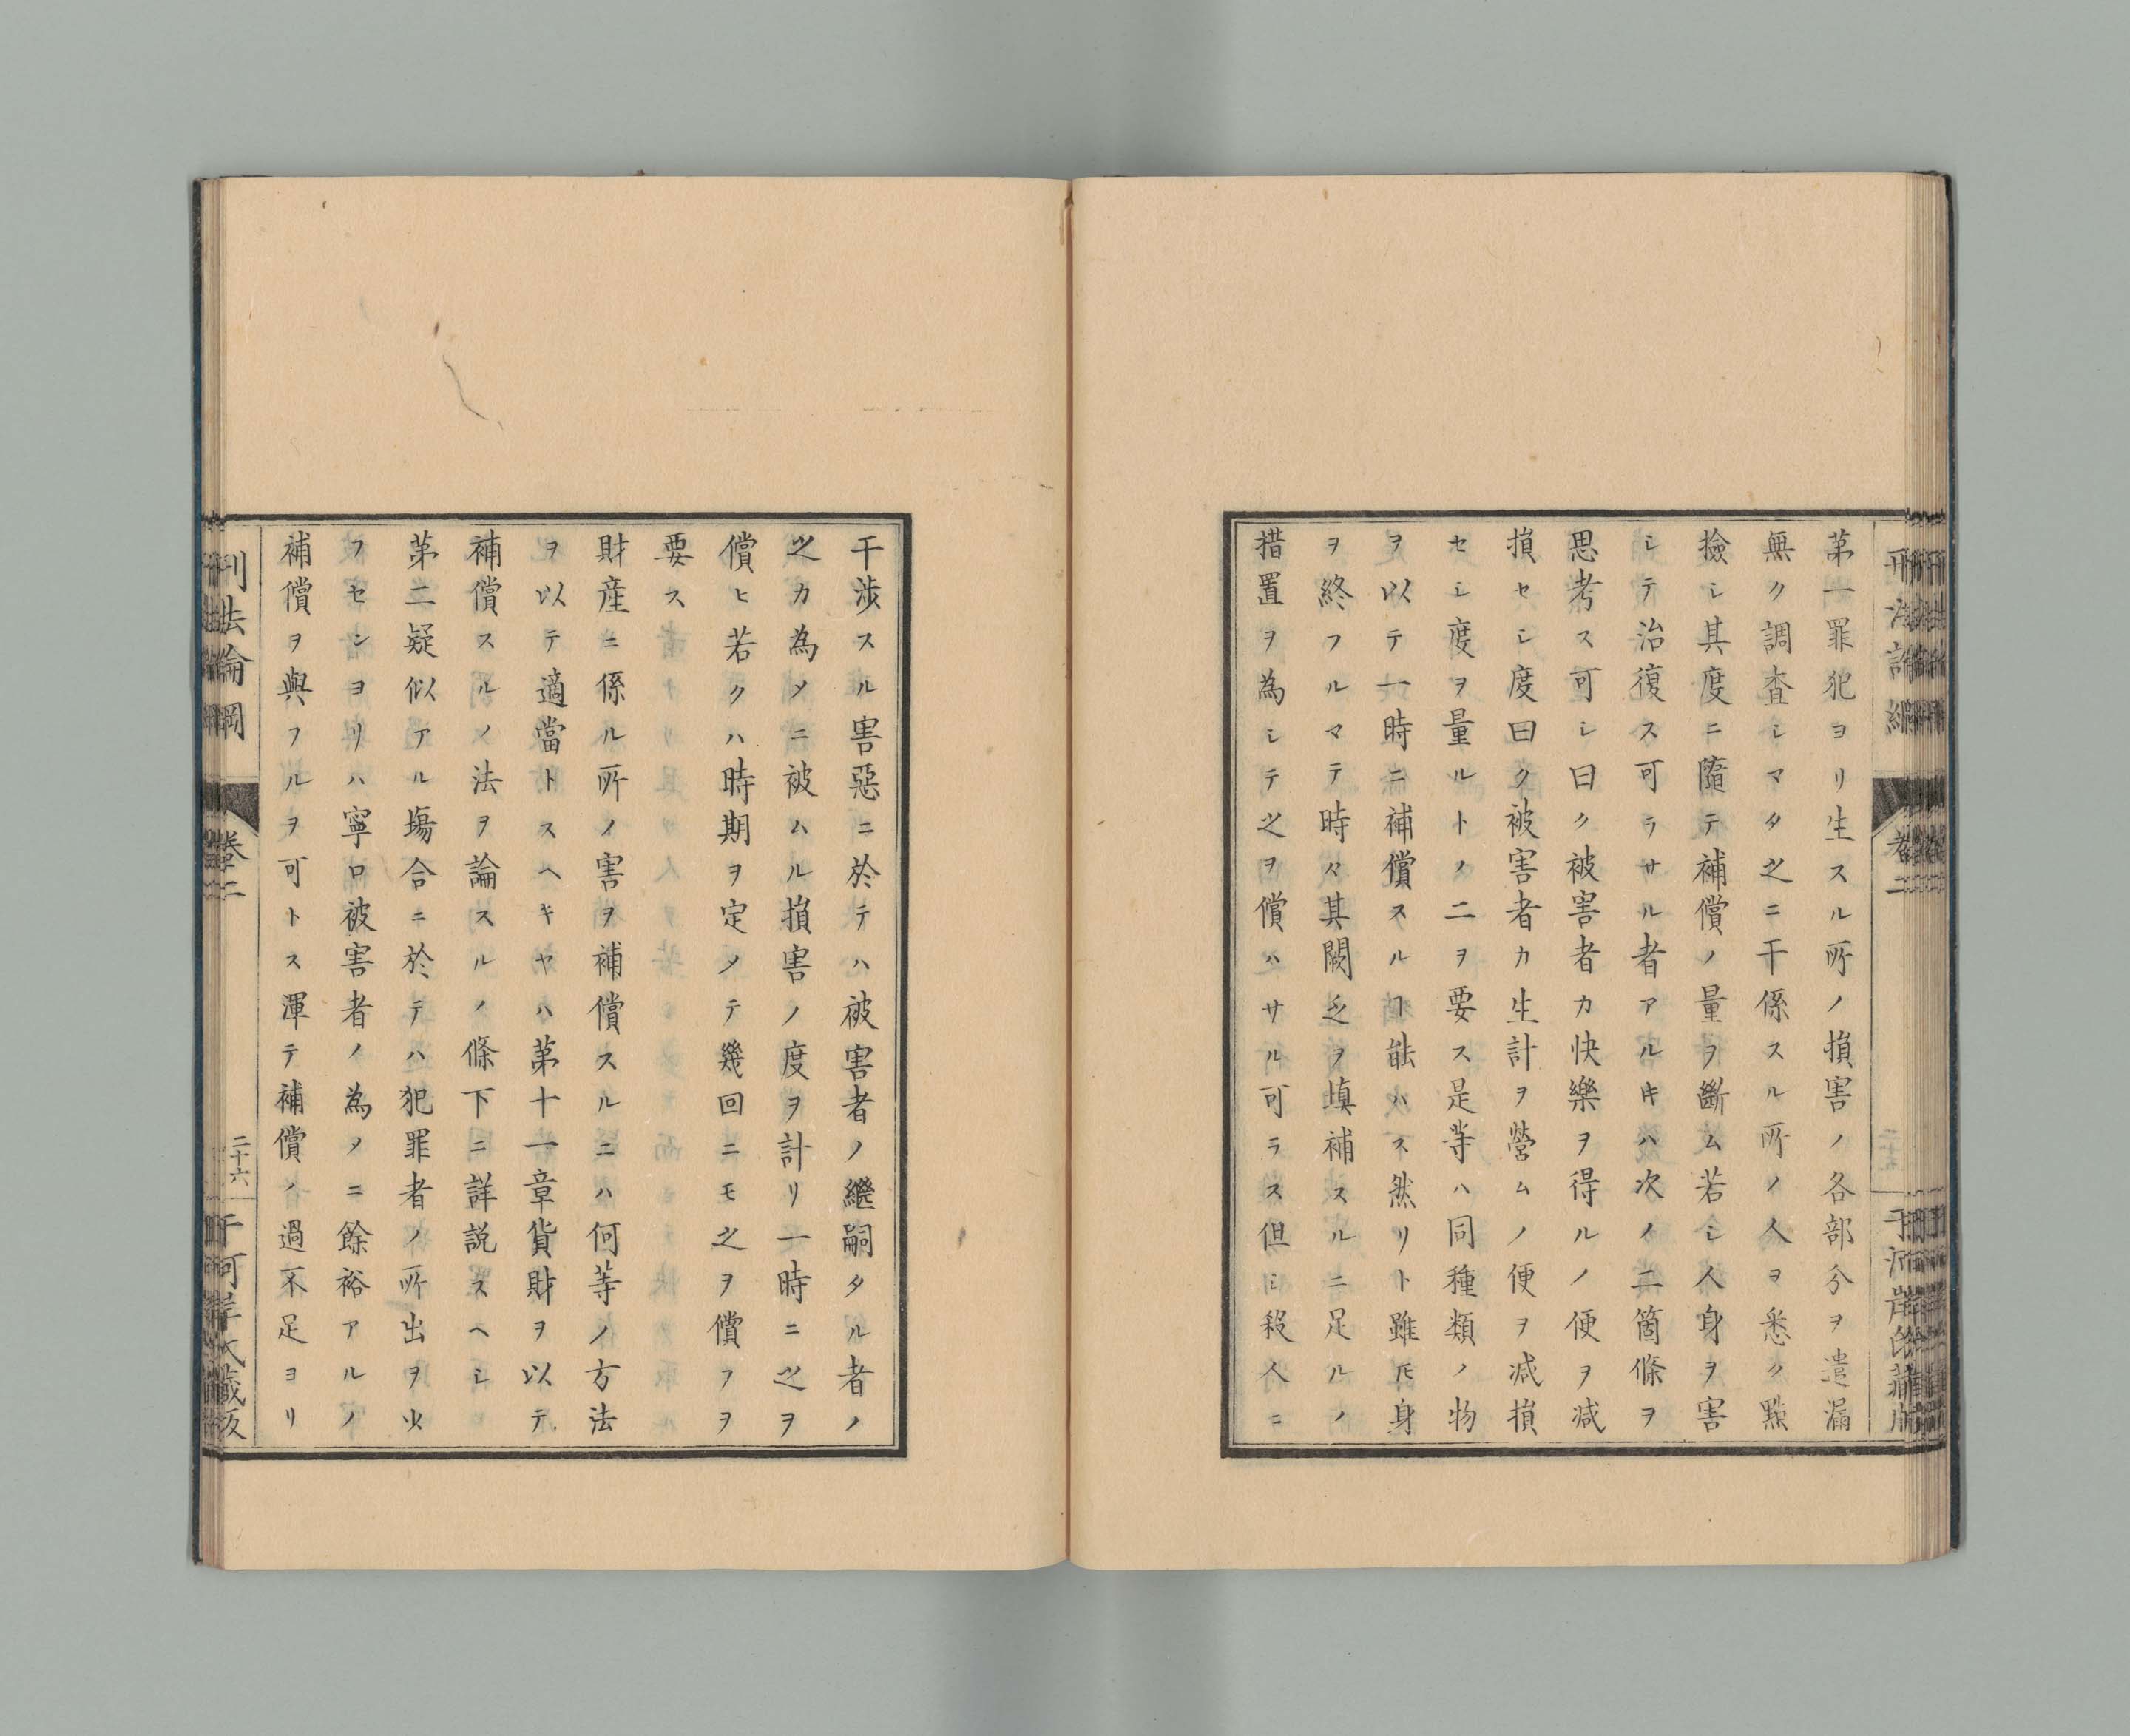 第一罪犯ヨリ生スル所ノ損害ノ各部分ヲ遣漏
無ク調査シマタ之ニ干係スル所ノ人ヲ悉ク點
撿シ其度ニ隨テ補償ノ量ヲ斷ム若シ人身ヲ害
シテ治復ス可ラサル者アルキハ次ノ二箇條ヲ
思考ス可シ曰ク被害者カ快樂ヲ得ルノ便ヲ减
損セシ度曰ク被害者カ生計ヲ營ムノ便ヲ减損
セシ度ヲ量ルトノ二ヲ要ス是等ハ同種類ノ物
ヲ以テ一時ニ補償スルヿ能ハス然リト雖𪜈身
ヲ終フルマテ時々其闕乏ヲ填補スルニ足ルノ
措置ヲ為シテ之ヲ償ハサル可ラス但シ殺人ニ
干渉スル害惡ニ於テハ被害者ノ繼嗣タル者ノ
之カ為メニ被ムル損害ノ度ヲ計リ一時ニ之ヲ
償ヒ若クハ時期ヲ定メテ幾回ニモ之ヲ償フヲ
要ス
財産ニ係ル所ノ害ヲ補償スルニハ何等ノ方法
ヲ以テ適當トスヘキヤハ第十一章貨財ヲ以テ
補償スルノ法ヲ論スルノ條下ニ詳説スヘシ
第二疑似アル塲合ニ於テハ犯罪者ノ所出ヲ少
フセンヨリハ寧ロ被害者ノ為メニ餘裕アルノ
補償ヲ與フルヲ可トス渾テ補償ノ過不足ヨリ
刑法論綱
卷二
二十六
干河岸氏藏版